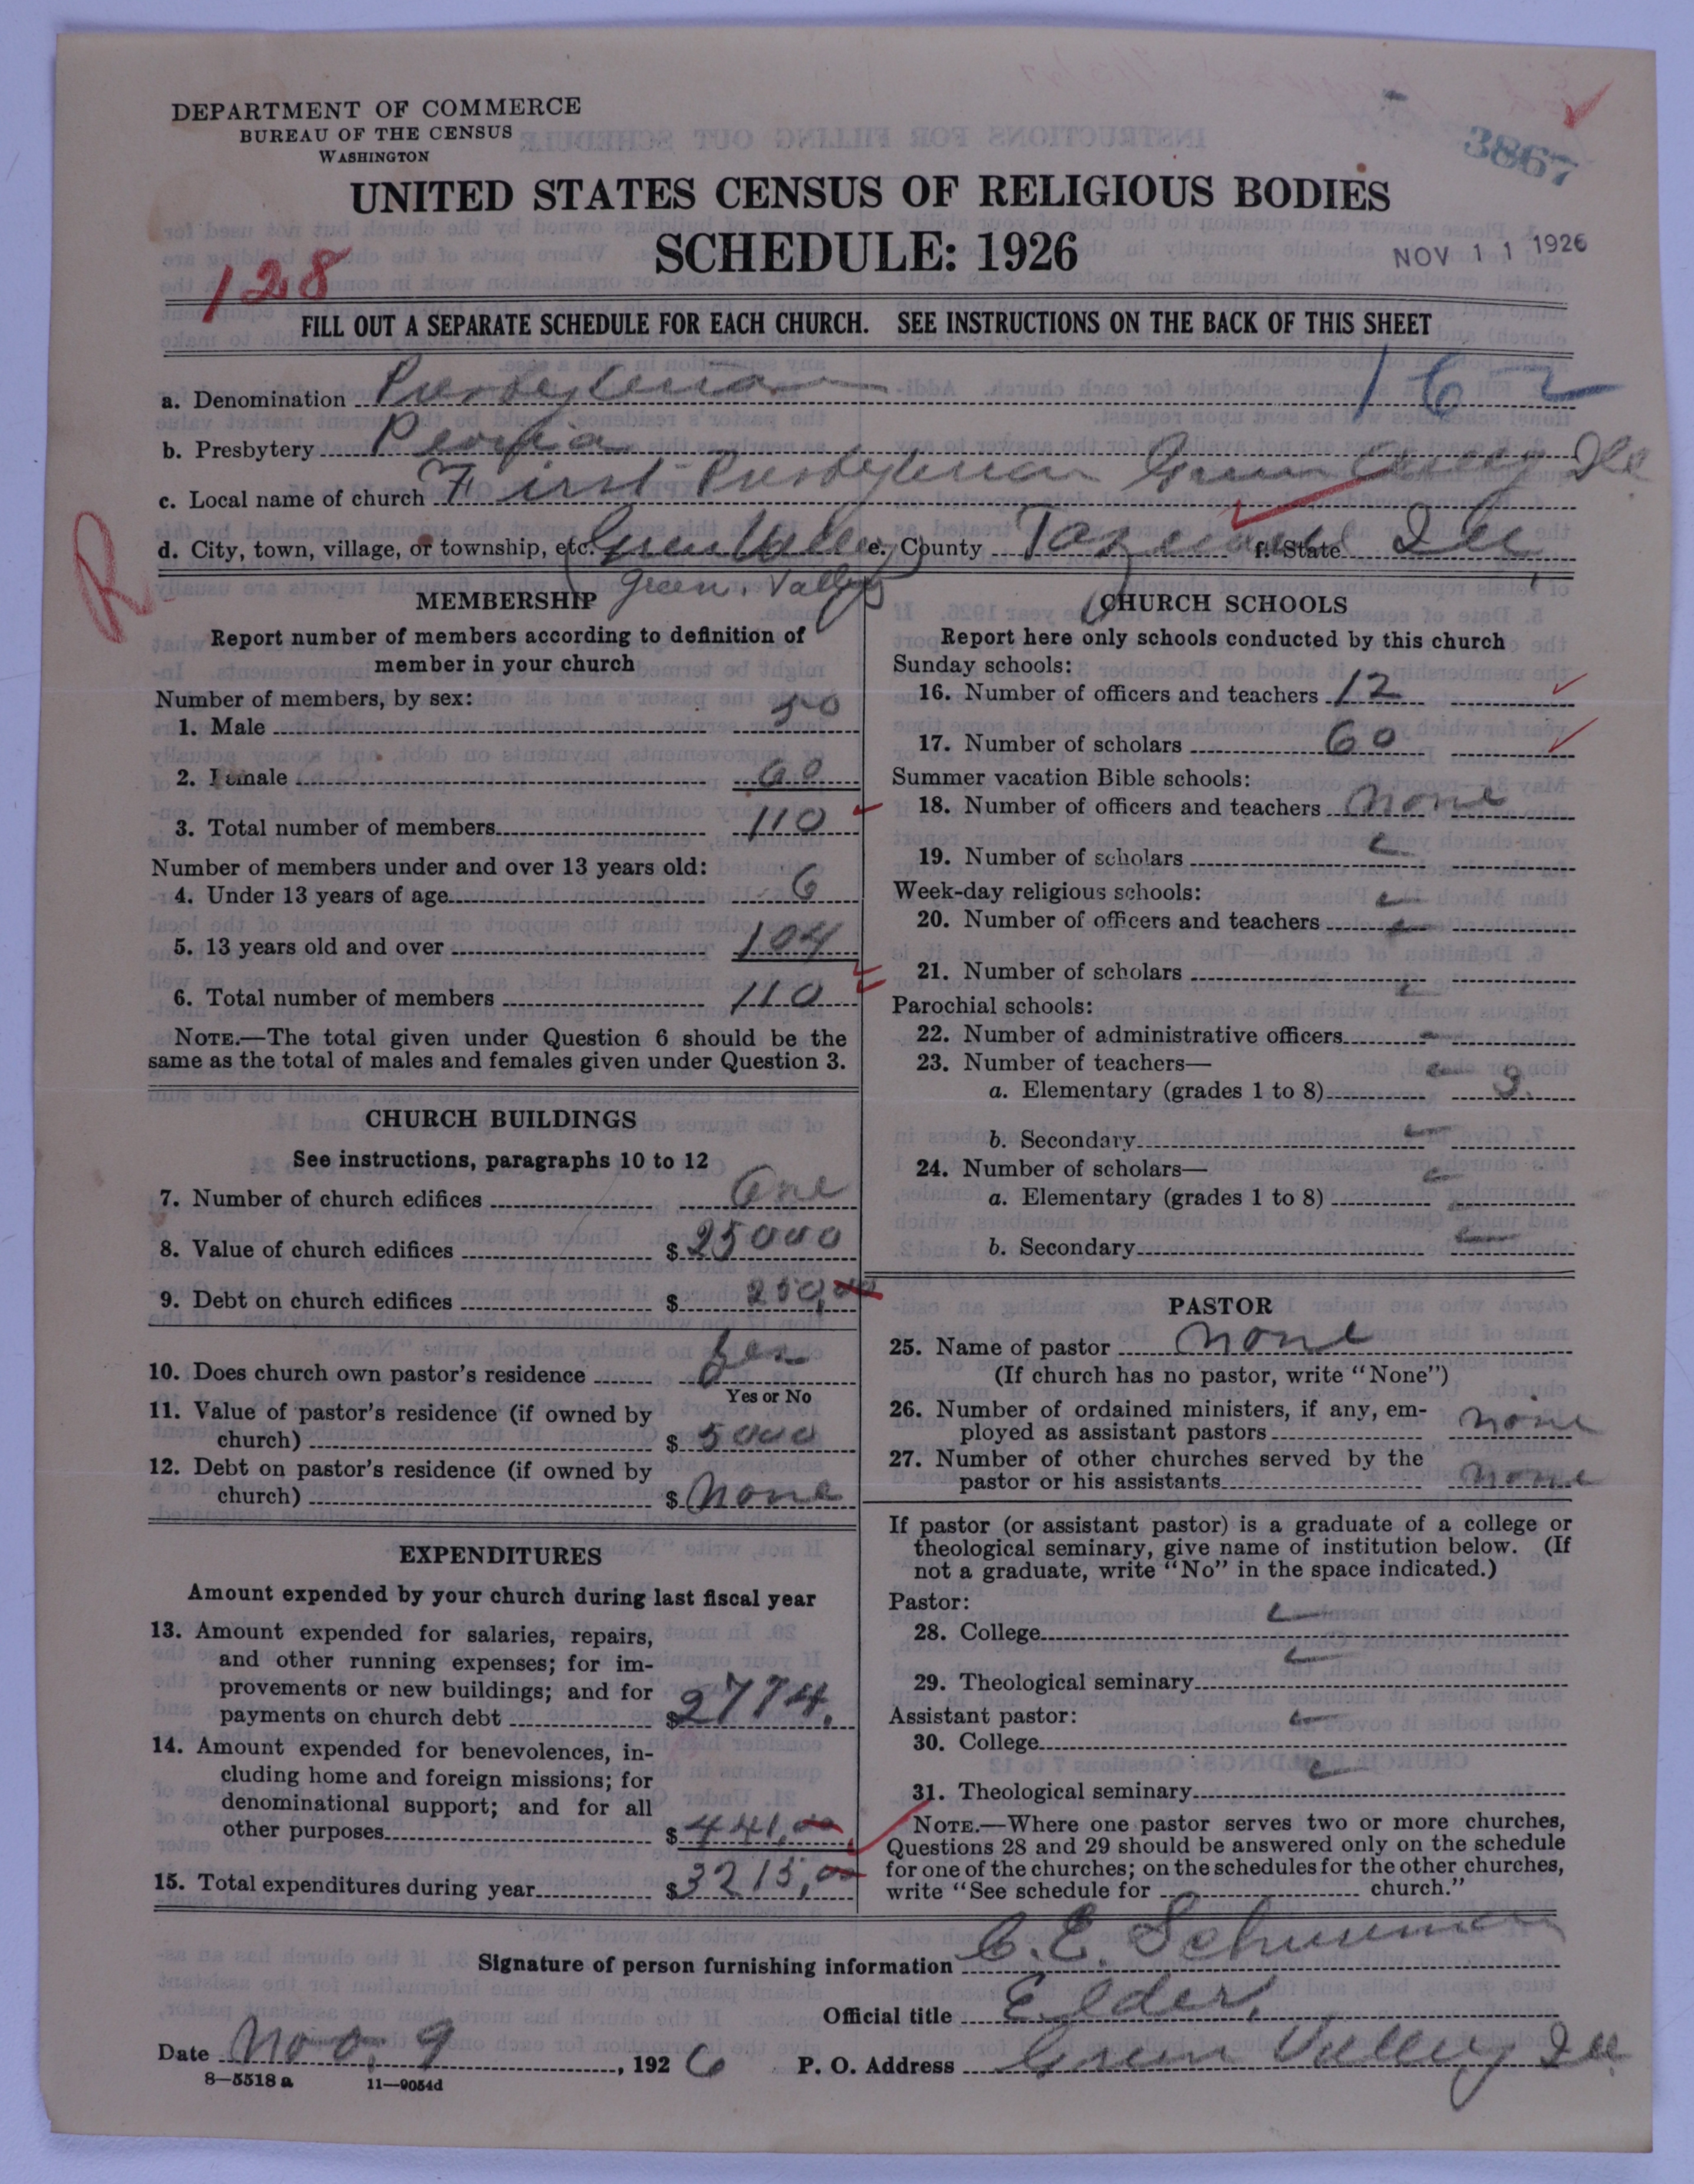 DEPARTMENT OF COMMERCE
BUREAU OF THE CENSUS
WASHINGTON
3867
UNITED STATES CENSUS OF RELIGIOUS BODIES
SCHEDULE: 1926
NOV 11 1926
128
FILL OUT A SEPARATE SCHEDULE FOR EACH CHURCH. SEE INSTRUCTIONS ON THE BACK OF THIS SHEET
a. Denomination Presbyterian 162
b. Presbytery Peoria
c. Local name of church First Presbyterian Green Valley Ill
d. City, town, village, or township, etc. Green Valley e. County Tazewell f. State Ill
Green Valley
R
MEMBERSHIP
Report number of members according to definition of
member in your church
Number of members, by sex:
1. Male 50
2. Female 60
3. Total number of members 110
Number of members under and over 13 years old:
4. Under 13 years of age 6
5. 13 years old and over 104
6. Total number of members 110
NOTE.—The total given under Question 6 should be the
same as the total of males and females given under Question 3.
CHURCH BUILDINGS
See instructions, paragraphs 10 to 12
7. Number of church edifices One
8. Value of church edifices $25000
9. Debt on church edifices $250.00
10. Does church own pastor's residence Yes
Yes or No
11. Value of pastor's residence (if owned by
church) $5000
12. Debt on pastor's residence (if owned by
church) $None
EXPENDITURES
Amount expended by your church during last fiscal year
13. Amount expended for salaries, repairs,
and other running expenses; for im-
provements or new buildings; and for
payments on church debt $2774.
14. Amount expended for benevolences, in-
cluding home and foreign missions; for
denominational support; and for all
other purposes $441.00
15. Total expenditures during year $3215.00
CHURCH SCHOOLS
Report here only schools conducted by this church
Sunday schools:
16. Number of officers and teachers 12
17. Number of scholars 60
Summer vacation Bible schools:
18. Number of officers and teachers None
19. Number of scholars
Week-day religious schools:
20. Number of officers and teachers
21. Number of scholars
Parochial schools:
22. Number of administrative officers
23. Number of teachers—
a. Elementary (grades 1 to 8)
b. Secondary
24. Number of scholars—
a. Elementary (grades 1 to 8)
b. Secondary
PASTOR
25. Name of pastor None
(If church has no pastor, write "None")
26. Number of ordained ministers, if any, em-
ployed as assistant pastors None
27. Number of other churches served by the
pastor or his assistants None
If pastor (or assistant pastor) is a graduate of a college or
theological seminary, give name of institution below. (If
not a graduate, write "No" in the space indicated.)
Pastor:
28. College
29. Theological seminary
Assistant pastor:
30. College
31. Theological seminary
NOTE.—Where one pastor serves two or more churches,
Questions 28 and 29 should be answered only on the schedule
for one of the churches; on the schedules for the other churches,
write "See schedule for church."
Signature of person furnishing information C. E. Schureman
Official title Elder.
Date Nov. 9, 1926 P. O. Address Green Valley Ill
8—5518 a 11—9054d